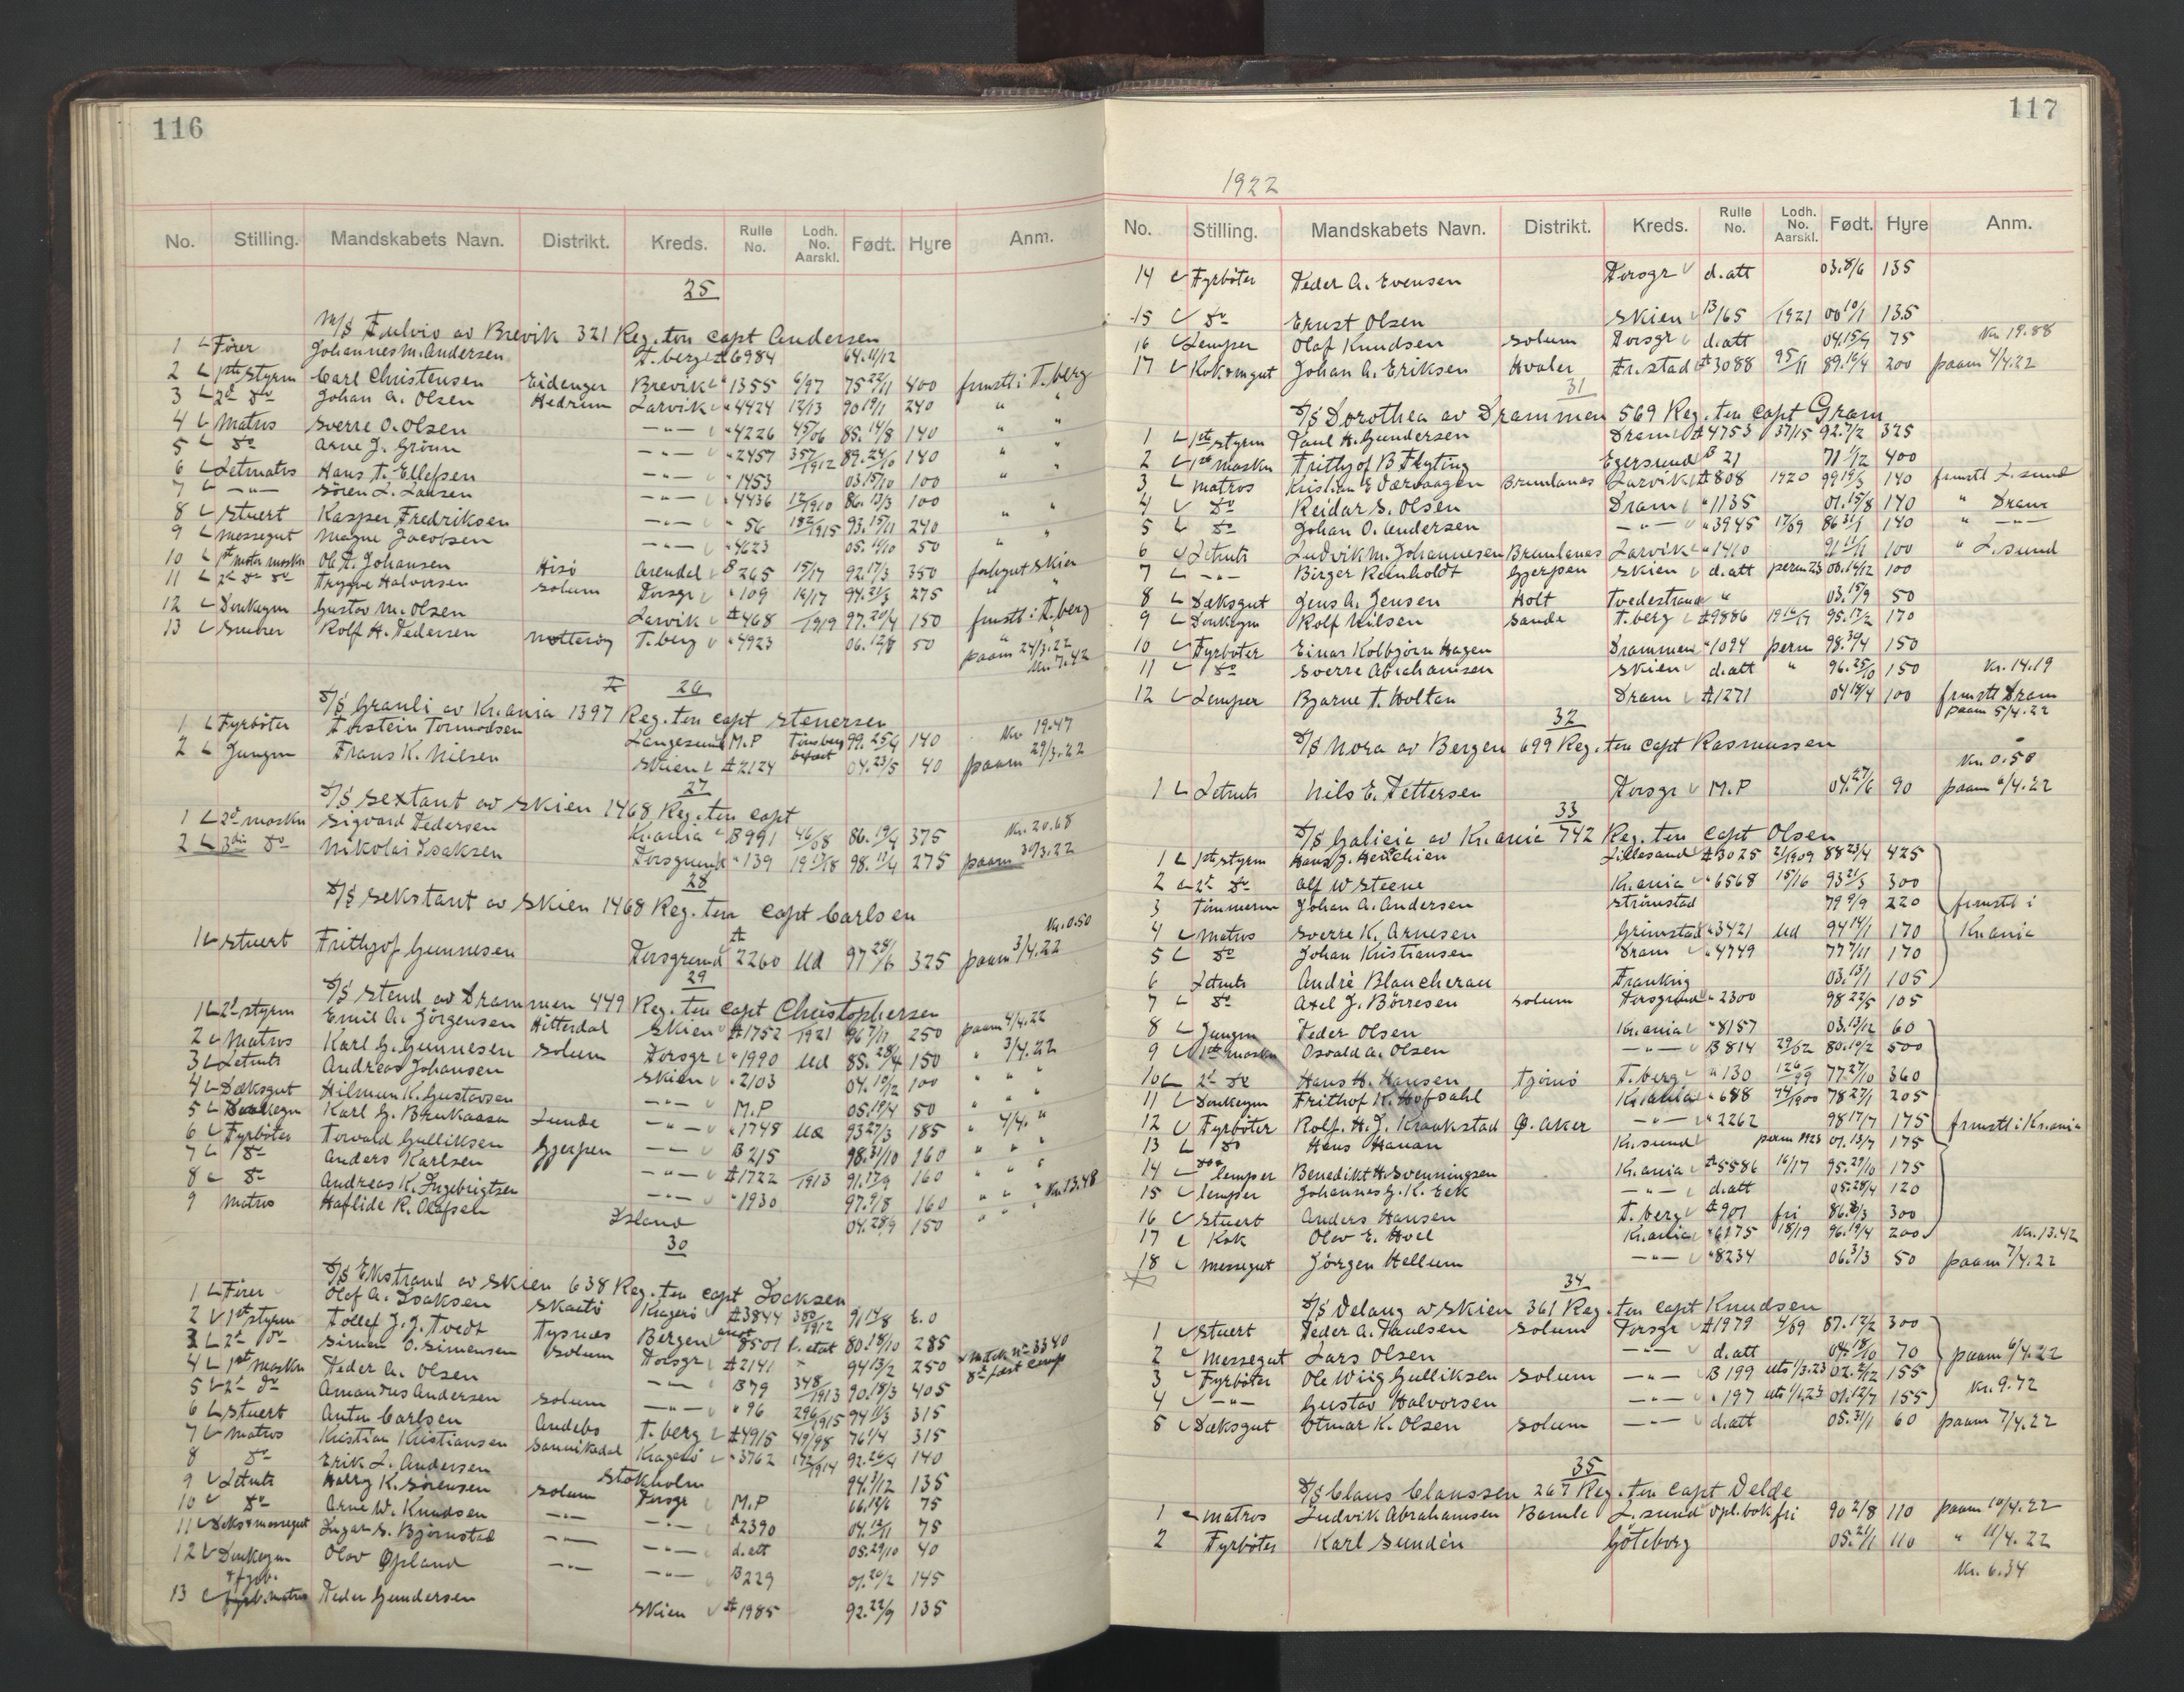 116
No. Stilling. Mandskabets Navn. Distrikt. Kreds. Rulle No. Lodh. No. Aarskl. Født. Hyre Anm.
25
M/S Fulvio av Brevik 321 Reg. ton capt Andersen
1 Fører Johannes M. Andersen T.berg A 6984 64. 11/12
2 1ste styrm Carl Christensen Eidanger Brevik " 1355 6/97 75 22/11 400 frmstl i T.berg
3 2d do Johan A. Olsen Hedrum Larvik " 4424 12/13 90 19/1 240 " "
4 Matros Sverre O. Olsen —"— " 4226 45/06 85. 14/8 140 " "
5 do Arne J. Grönn —"— " 2457 357/1912 89. 24/10 140 " "
6 Letmatrs Hans T. Ellefsen —"— " 1453 03. 15/10 100 "
7 —"— Sören L. Larsen —"— " 4436 12/1910 86. 13/3 100
8 Stuert Kasper Fredriksen —"— " 56 182/1915 93. 15/11 240 " "
9 Messegut Magne Jacobsen —"— " 4623 05. 11/10 50 " "
10 1st motor maskn Ole A. Johansen Hisö Arendal B 265 15/17 92. 17/3 350 forhyret Skien
11 2d do do Trygve Halvorsen Solum Porsgr " 109 16/17 94. 21/3 275 "
12 Donkeym Gustav M. Olsen Larvik A 468 /1919 97. 20/4 150 frmstl i T.berg
13 Smører Rolf H. Pedersen Nötteröy T.berg " 4923 06. 12/8 50 " "
paam 24/3.22
Kr. 7.42
26
D/S Granli av Kr.ania 1397 Reg. ton capt Stenersen
1 Fyrböter Torstein Tormodsen Langesund M.P Tönsberg 99. 25/4 140 Kr 19.47
2 Jungm Frans K. Nilsen Skien A 2124 04. 23/5 40 paam 29/3.22
27
D/S Sextant av Skien 1468 Reg. ton capt
1 2d maskn Sigvard Pedersen Kr.ania B 991 46/08 86. 19/4 375 Kr. 20.68
2 3die do Nikolai Isaksen Porsgrund " 139 19 17/18 98. 11/4 275 paam 30/3.22
28
D/S Sekstant av Skien 1468 Reg. ton capt Carlsen
Kr. 0.50
1 Stuert Frithjof Gunnesen Porsgrund A 2260 Ud 97 28/6 325 paam 3/4.22
29
D/S Stend av Drammen 449 Reg. ton capt Christophersen
1 2d styrm Emil A. Jörgensen Hitterdal Skien A 1752 /1921 96 7/11 250 paam 4/4.22
2 Matros Karl G. Gunnesen Solum Porsgr " 1990 Ud 85. 28/4 150 " 3/4.22
3 Letmts Andreas Johansen Skien " 2103 04. 10/2 100 " " "
4 Dæksgut Hilmun K. Gustavsen —"— M.P 05. 19/4 50 " " "
5 Donkeym Karl G. Brukaasa Lunde —"— " 1748 Ud 93 27/3 185 " 4/4. "
6 Fyrböter Torvald Gulliksen Gjerpen —"— B 215 98. 31/10 160 " " "
7 do Anders Karlsen —"— A 1722 /1913 91. 17/9 160 " " "
8 do Andreas K. Ingebrigtsen —"— " 1930 97. 9/8 160 " " " Kr. 13.48
9 Matros Haflide R. Olafsen Island 04. 28/9 150 " " "
30
D/S Ekstrand av Skien 638 Reg. ton capt Isaksen
1 Fører Olaf A. Isaksen Skaatö Kragerö A 3844 380/1912 91 14/8 E.O
2 1ste styrm Tollef J. J. Tvedt Tysnæs Bergen 8501 80. 18/10 285
3 2d do Simen O. Simensen Solum Porsgr A 2141 " 94 13/2 250
4 1st maskn Peder A. Olsen —"— B 79 348/1913 90. 18/3 405
5 2d do Amandus Andersen Solum —"— " 96 296/1915 94 11/3 315
6 Stuert Anton Carlsen Andebo T.berg A 4915 49/98 76 1/4 315
7 Matros Kristian Kristiansen Sannikedal Kragerö " 3762 172/1914 92. 26/4 140
8 do Erik L. Andersen Stokholm 94. 3/12 135
9 Letmts Harry K. Sörensen Solum Porsgr M.P 06. 12/6 75
10 do Arne W. Knudsen —"— —"— A 2390 04. 12/11 75
11 Dæks & messegut Ingar S. Björnstad —"— —"— d.att 05. 29/10 40
12 Donkeym & fyrb. Olav Opland —"— —"— B 229 01. 20/2 145
13 fyrb. matros Peder Gundersen Skien A 1985 92. 22/9 135
117
1922
No. Stilling. Mandskabets Navn. Distrikt. Kreds. Rulle No. Lodh. No. Aarskl. Født. Hyre Anm.
14 Fyrböter Peder A. Evensen Porsgr d.att 03. 8/6 135
15 do Ernst Olsen Skien B 165 /1921 00 10/1 135
16 Lemper Olaf Knudsen Solum Porsgr d.att 04. 15/9 75 Kr 19.88
17 Kokemgut Johan A. Eriksen Hvaler Fr.stad A 3088 95/11 89. 16/4 200 paam 4/4.22
31
D/S Dorothea av Drammen 569 Reg. ton capt Gram
1 1ste styrm Paul H. Gundersen Dram A 4753 37/15 92. 7/2 325
2 1ste maskn Frithjof B Flyting Egersund B 21 71 1/12 400
3 Matros Kristian E Værvaagen Brunlanes Larvik A 808 1920 99 19/3 140 frmstl L.sund
4 do Reidar S. Olsen Dram " 1135 01. 15/8 170 " Dram
5 do Johan O. Andersen —"— " 3945 17/09 86 31/1 140 " —"—
6 Letmts Ludvik M. Johannesen Brunlanes Larvik " 1410 91 11/11 100 " L.sund
7 —"— Birger Reinholdt Gjerpen Skien d.att perm 23 00. 14/12 100
8 Dæksgut Jens A. Jensen Holt Tvedestrand " 03. 15/9 50
9 Donkeym Rolf Nilsen Sande T.berg A 9886 19 16/17 95. 17/2 170
10 Fyrböter Einar Kolbjörn Hagen Drammen " 1094 perm 98. 30/4 150
11 do Sverre Abrahamsen Skien d.att " 96. 25/10 150 Kr. 14.19
12 Lemper Bjarne T. Holtan Dram A 1271 04 18/4 100 frmstl Dram
paam 5/4.22
32
D/S Nora av Bergen 699 Reg. ton capt Rasmussen
Kr. 0.50
1 Letmts Nils E. Pettersen Porsgr M.P 04. 27/6 90 paam 6/4.22
33
D/S Galicia av Kr.ania 742 Reg. ton capt Olsen
1 1ste styrm Hans J. Lillesand A 3025 21/1909 88 23/4 425
2 2d do Alf W Steene Kr.ania " 6568 15/16 93 21/3 300
3 Timmerm Johan A. Andersen Strömstad 79 9/9 220 frmstl i
4 Matros Sverre K. Arnesen Grimstad " 3421 Ud 94 14/1 170 Kr.ania
5 do Johan Kristiansen Dram " 4749 77 7/11 170
6 Letmts Andrè Blancherau Frankrig 03. 13/1 105
7 do Axel J. Börresen Solum Porsgrund " 2300 98 22/5 105
8 Jungm Peder Olsen Kr.ania " 8157 03. 13/12 60
9 1ste maskn Osvald A. Olsen —"— B 814 29/02 80. 19/2 500
10 2d do Hans H. Hansen Tjömö T.berg " 130 126/99 77. 27/10 360
11 Donkeym Frithof K. Hofsahl Kr.ania " 688 74/1900 78 27/1 205
12 Fyrböter Rolf. H. J. Kraakstad Ø. Aker —"— " 2262 98 17/7 175 frmstl i Kr.ania
13 do Hans Hanan Kr.sund perm 1923 01. 13/7 175
14 do lemper Benedikt H. Svenningsen Kr.ania A 5586 16/17 95. 29/10 175
15 lemper Johannes G. K. Eek —"— d.att 05. 28/4 120
16 Stuert Anders Hansen T.berg A 901 fri 86. 8/3 300
17 Kok Olav E. Hoel Kr.ania " 6175 18/19 96. 19/4 200 Kr. 13.42
18 Messegut Jörgen Hellum —"— " 8234 06. 3/3 50 paam 7/4.22
34
D/S Delaug av Skien 361 Reg. ton capt Knudsen
1 Stuert Peder A. Paulsen Solum Porsgr A 1979 4/09 87. 12/2 300
2 Messegut Lars Olsen —"— d.att 04. 18/10 70 paam 6/4.22
3 Fyrböter Ole Wiig Gulliksen Solum —"— B 199 uts 1/3.23 02. 2/12 155
4 —"— Gustav Halvorsen —"— " 197 uts 1/1.23 01. 12/7 155 Kr. 9.72
5 Dæksgut Otmar K. Olsen Solum —"— d.att 05. 31/1 60 paam 7/4.22
35
D/S Claus Clanssen 267 Reg. ton capt Delde
1 Matros Ludvik Abrahamsen Bamle L.sund opl.bok fri 90 2/8 110 paam 10/4.22
2 Fyrböter Karl Sundèn Göteborg 05. 21/1 110 " 11/4.22
Kr. 6.34